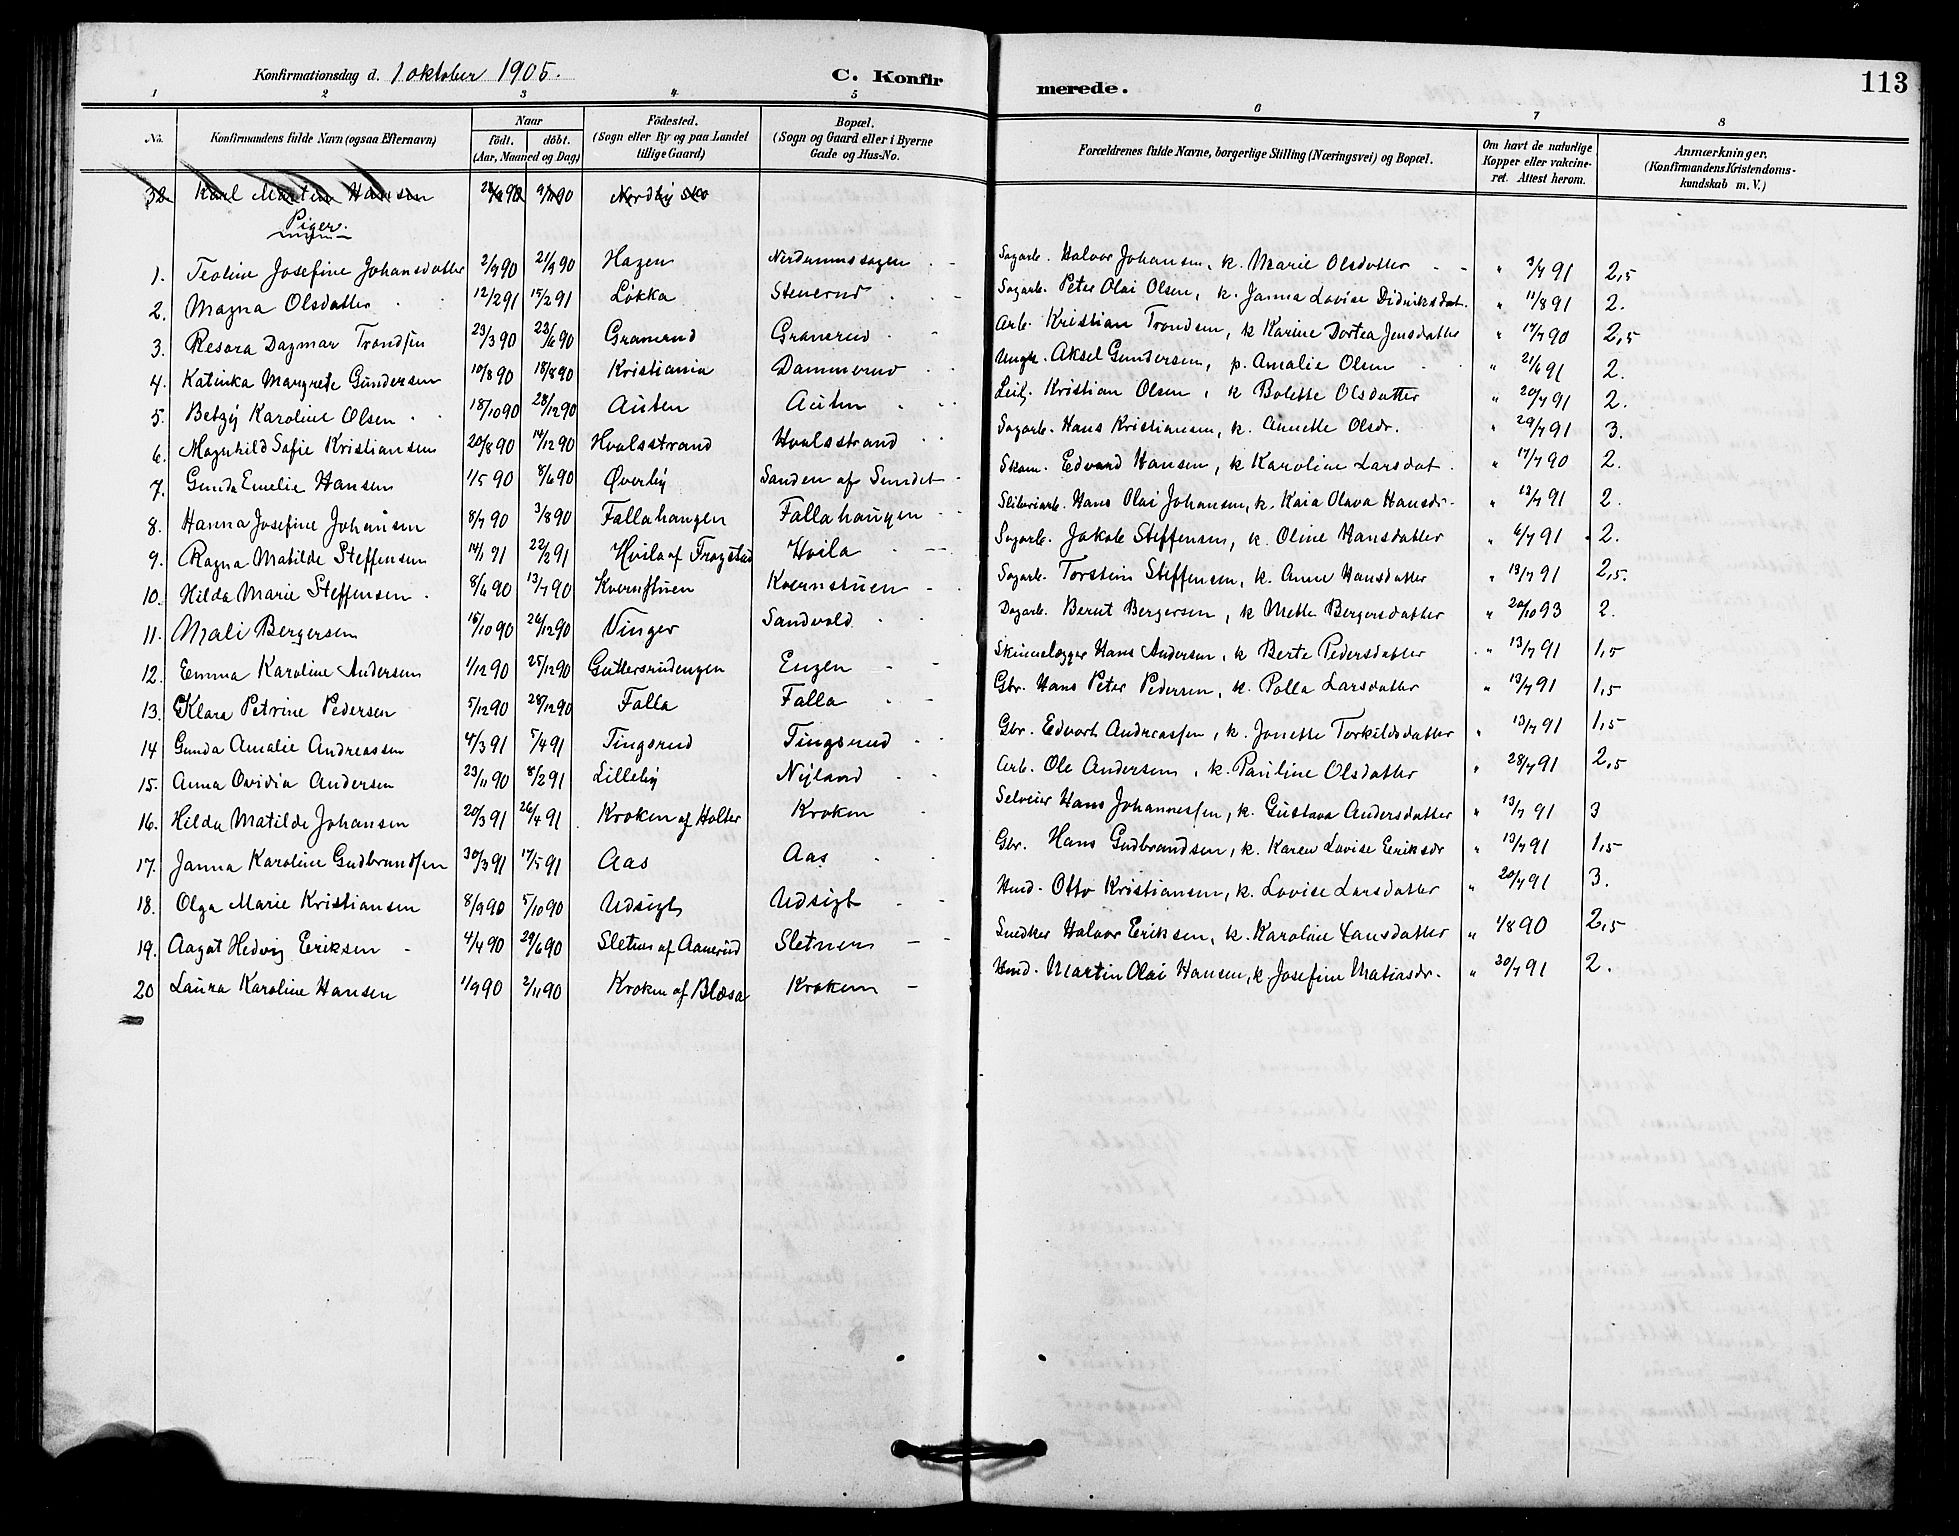 113
Konfirmationsdag d. 1 oktober 1905. C. Konfirmerede.
1 2 3 4 5 6 7 8
No. Konfirmandens fulde Navn (ogsaa Efternavn) Naar födt. döbt. (Aar, Maaned og Dag) Födested. (Sogn eller By og paa Landet tillige Gaard) Bopæl. (Sogn og Gaard eller i Byerne Gade og Hus-No. Forældrenes fulde Navne, borgerlige Stilling (Næringsvei) og Bopæl. Om havt de naturlige Kopper eller vakcineret. Attest herom. Anmærkninger. (Konfirmandens Kristendomskundskab m. V.)
32. Karl Martin Hansen
Piger.
1. Teoline Josefine Johansdatter 2/9 90 21/9 90 Hagen Sagarb. Halvor Johansen, k. Marie Olsdatter " 3/7 91 2,5
2. Magna Olsdatter 12/2 91 15/2 91 Løkka Stenerud Sagarb. Peter Olai Olsen, k. Janna Lovise Didriksdat. " 11/8 91 2.
3. Resora Dagmar Trondsen 23/3 90 23/6 90 Granerud Granerud Arb. Kristian Trondsen, k. Karine Dortea Jensdatter " 17/7 90 2,5
4. Katinka Margrete Gundersen 10/8 90 18/8 90 Kristiania Dammerud Ungk. Aksel Gundersen, p. Amalie Olsen " 21/6 91 2.
5. Betzy Karoline Olsen 18/10 90 28/12 90 Auten Auten Leil. Kristian Olsen, k Bolette Olsdatter " 20/7 91 2.
6. Magnhild Sofie Kristiansen 20/8 90 14/12 90 Hvalsstrand Hvalsstrand Sagarb. Hans Kristiansen, k. Annette Olsdr. " 29/7 91 3.
7. Gunda Emelie Hansen 1/5 90 8/6 90 Øverby Sanden af Sundet Skom. Edvard Hansen, k Karoline Larsdat. " 17/7 90 2.
8. Hanna Josefine Johansen 8/7 90 3/8 90 Fallahaugen Fallahaugen Sliberiarb. Hans Olai Johansen, k. Kaia Olava Hansdr. " 13/7 91 2.
9. Ragna Matilde Steffensen 14/1 91 22/2 91 Hvila af Frogstad Hvila Sagarb. Jakob Steffensen, k. Oline Hansdatter " 6/7 91 2.
10. Hilda Marie Steffensen 8/6 90 13/7 90 Kvernstuen Kvernstuen Sagarb. Torstein Steffensen, k. Anne Hansdatter " 13/7 91 2,5.
11. Mali Bergersen 15/10 90 26/12 90 Vinger Sandvold Dagarb. Bernt Bergersen, k Mette Bergersdatter " 20/10 93 2.
12. Emma Karoline Andersen 1/12 90 25/12 90 Guttersrudengen Engen Skinnelægger Hans Andersen, k Berte Pedersdatter " 13/7 91 1,5
13. Klara Petrine Pedersen 5/12 90 28/12 90 Falla Falla Gbr. Hans Peter Pedersen, k. Polla Larsdatter " 13/7 91 1,5
14 Gunda Amalie Andreassen 4/3 91 5/4 91 Tingsrud Tingsrud Gbr. Edvart Andreassen, k. Jonette Torkildsdatter " 13/7 91 1,5
15. Anna Ovidia Andersen 23/11 90 8/2 91 Lilleby Nyland Arb. Ole Andersen, k. Pauline Olsdatter " 28/7 91 2,5
16. Hilda Matilde Johansen 20/3 91 26/4 91 Kroken af Holter Kroken Selveier Hans Johannessen, k. Gustava Andersdatter " 13/7 91 3
17. Janna Karoline Gudbrandsen 30/3 91 17/5 91 Aas Aas Gbr. Hans Gudbrandsen, k. Karen Lovise Eriksdr " 13/7 91 1,5
18. Olga Marie Kristiansen 8/9 90 5/10 90 Udsigt Udsigt Hmd. Otto Kristiansen, k. Lovise Larsdatter " 20/7 91 3.
19. Aagot Hedvig Eriksen 4/4 90 29/6 90 Sletnen af Aamerud Sletnen Snedker Halvor Eriksen, k. Karoline Larsdatter " 1/8 90 2,5
20 Laura Karoline Hansen 1/9 90 2/11 90 Kroken af Blæsa Kroken Hmd. Martin Olai Hansen, k Josefine Matiasdr. " 30/7 91 2.